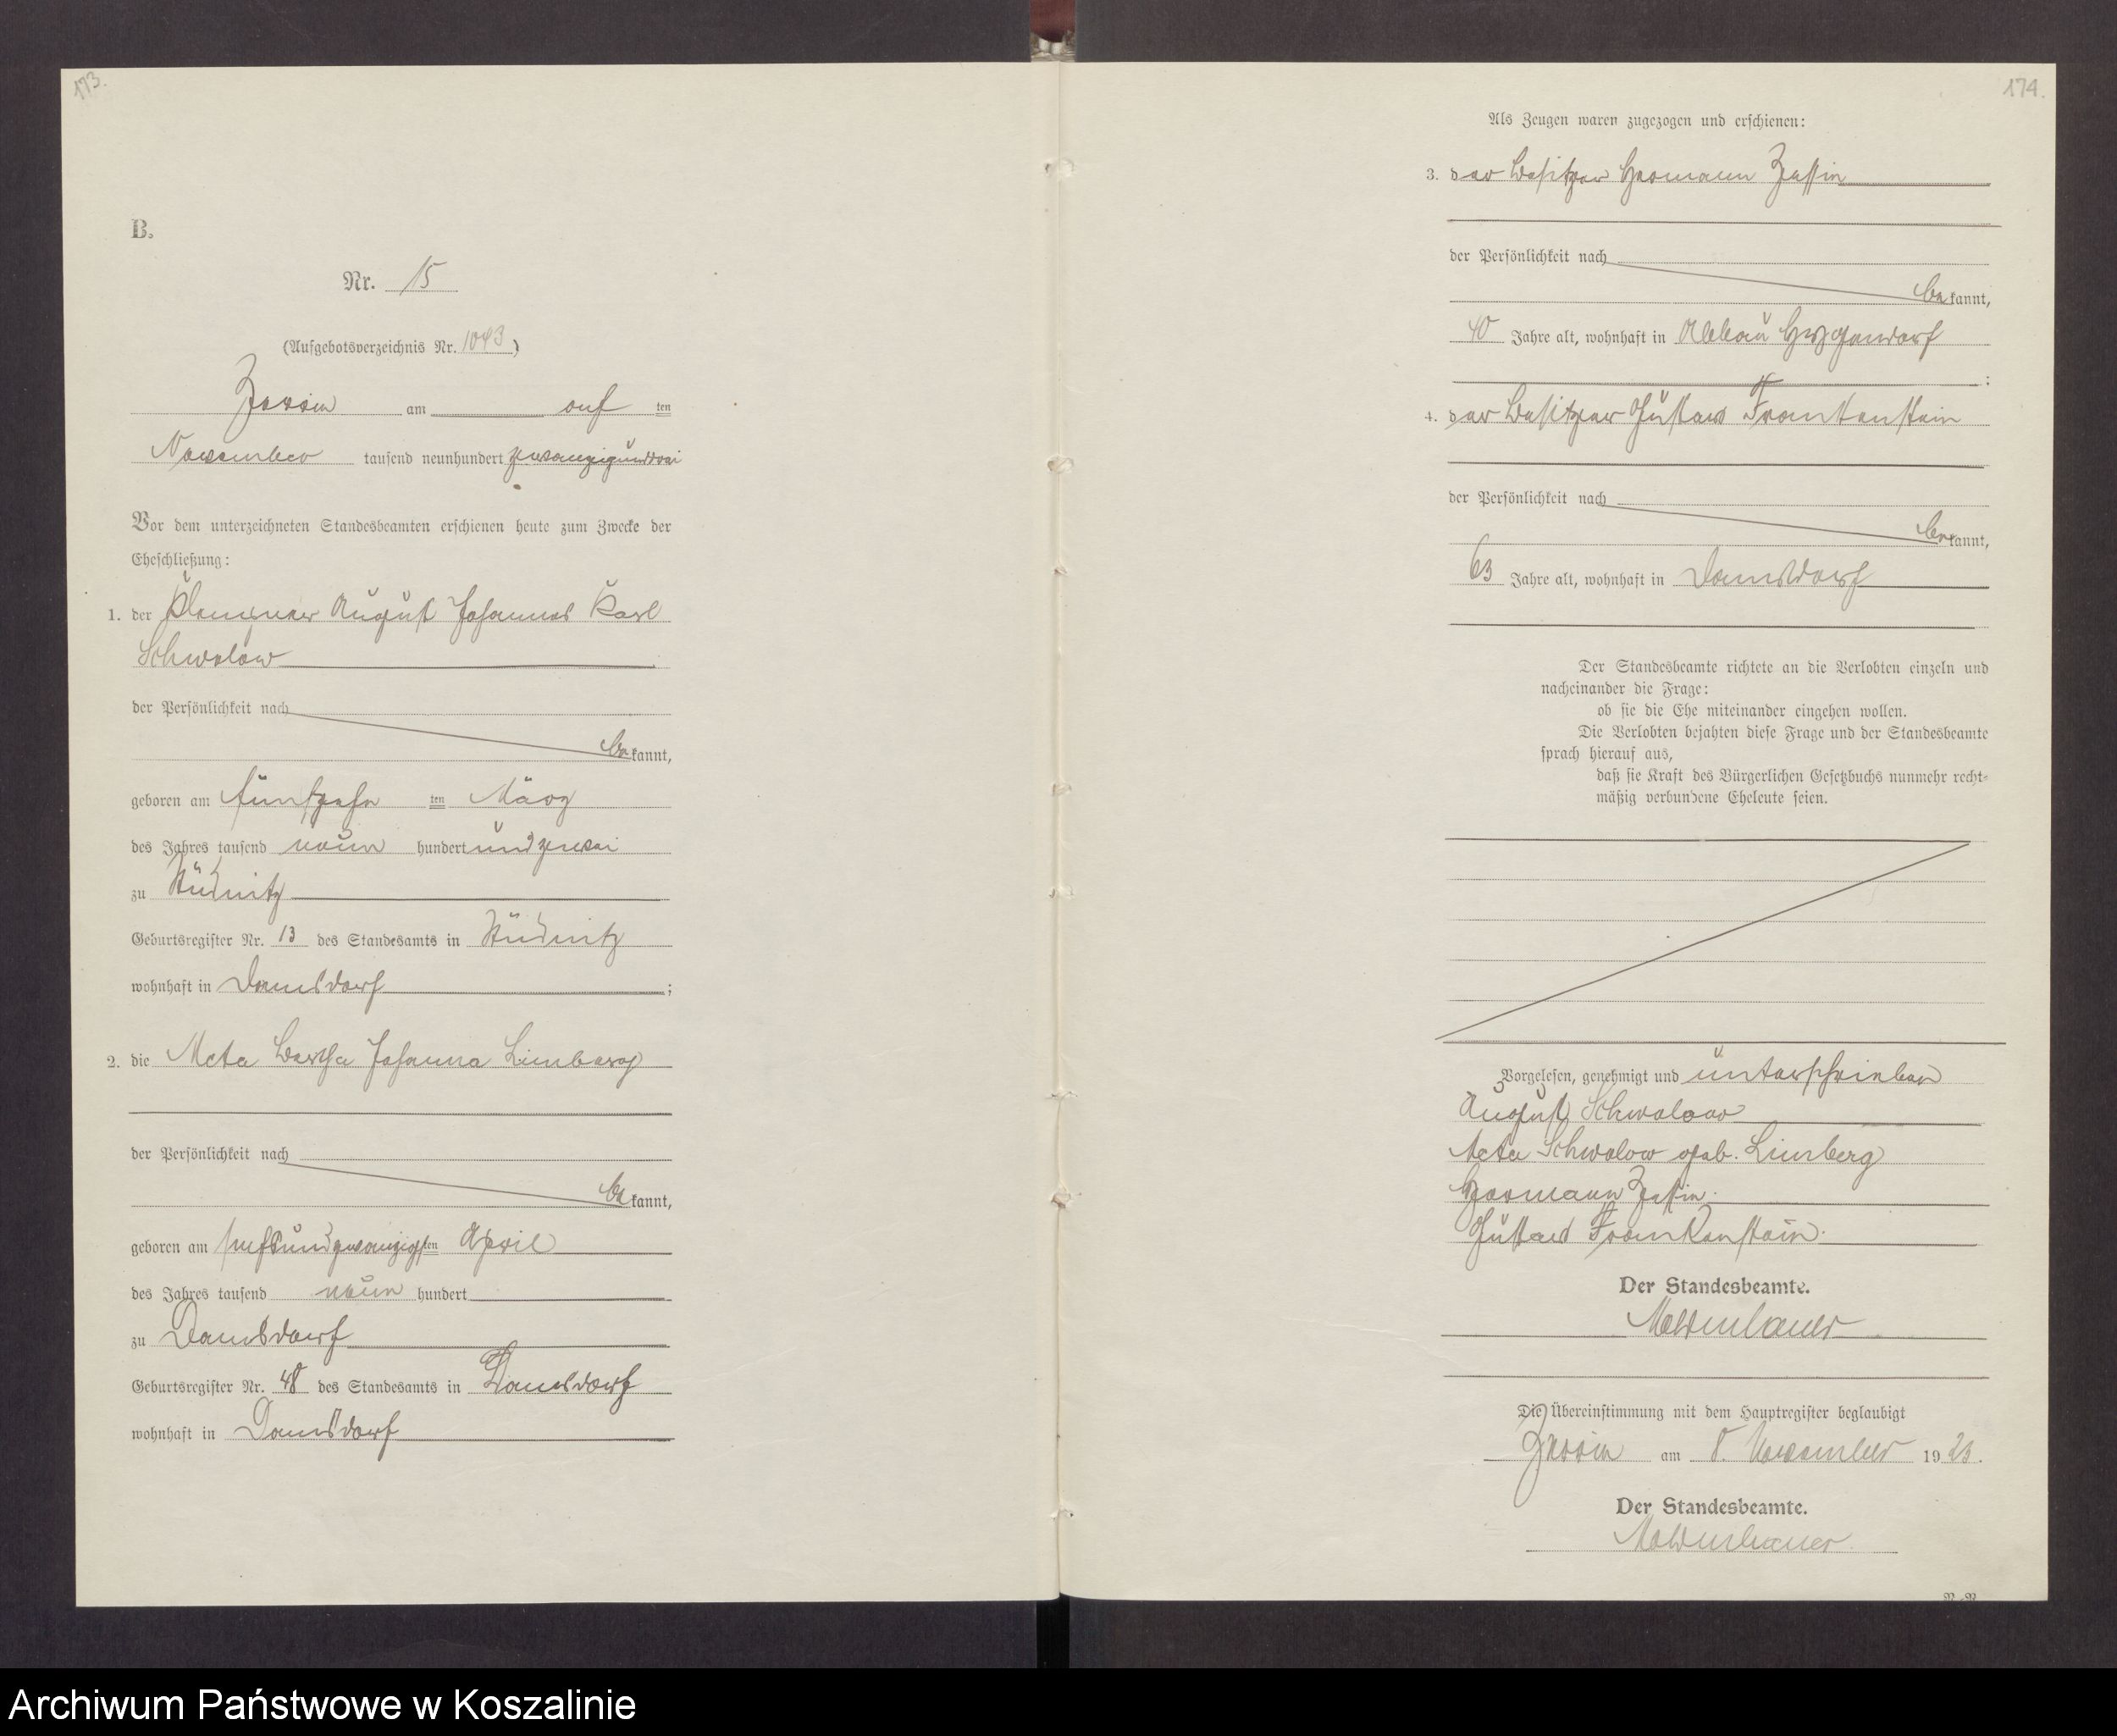 173.
B.
Nr. 15
(Aufgebotsverzeichnis Nr. 1043)
Zerrin am acht ten
November tausend neunhundert zwanzigunddrei
Vor dem unterzeichneten Standesbeamten erschienen heute zum Zwecke der
Eheschließung:
1. der Klempner August Johannes Karl
Schwolow
der Persönlichkeit nach
be kannt,
geboren am fünfzehn ten März
des Jahres tausend neun hundert und zwei
zu Stüdnitz
Geburtsregister Nr. 13 des Standesamts in Stüdnitz
wohnhaft in Damsdorf ;
2. die Meta Bertha Johanna Limberg
der Persönlichkeit nach
be kannt,
geboren am sechsundzwanzigsten April
des Jahres tausend neun hundert
zu Damsdorf
Geburtsregister Nr. 48 des Standesamts in Damsdorf
wohnhaft in Damsdorf
174.
Als Zeugen waren zugezogen und erschienen:
3. der Besitzer Hermann
der Persönlichkeit nach
be kannt,
40 Jahre alt, wohnhaft in Abbau Hygendorf
;
4. der Besitzer Gustav Frankenstein
der Persönlichkeit nach
be kannt,
63 Jahre alt, wohnhaft in Damsdorf
Der Standesbeamte richtete an die Verlobten einzeln und
nacheinander die Frage:
ob sie die Ehe miteinander eingehen wollen.
Die Verlobten bejahten diese Frage und der Standesbeamte
sprach hierauf aus,
daß sie Kraft des Bürgerlichen Gesetzbuchs nunmehr recht-
mäßig verbundene Eheleute seien.
Vorgelesen, genehmigt und unterschrieben
August Schwolow
Meta Schwolow geb. Limberg
Hermann
Gustav Frankenstein.
Der Standesbeamte.
Moldenhauer
Die Übereinstimmung mit dem Hauptregister beglaubigt
Zerrin am 8. November 19 23.
Der Standesbeamte.
Moldenhauer.
Archiwum Państwowe w Koszalinie